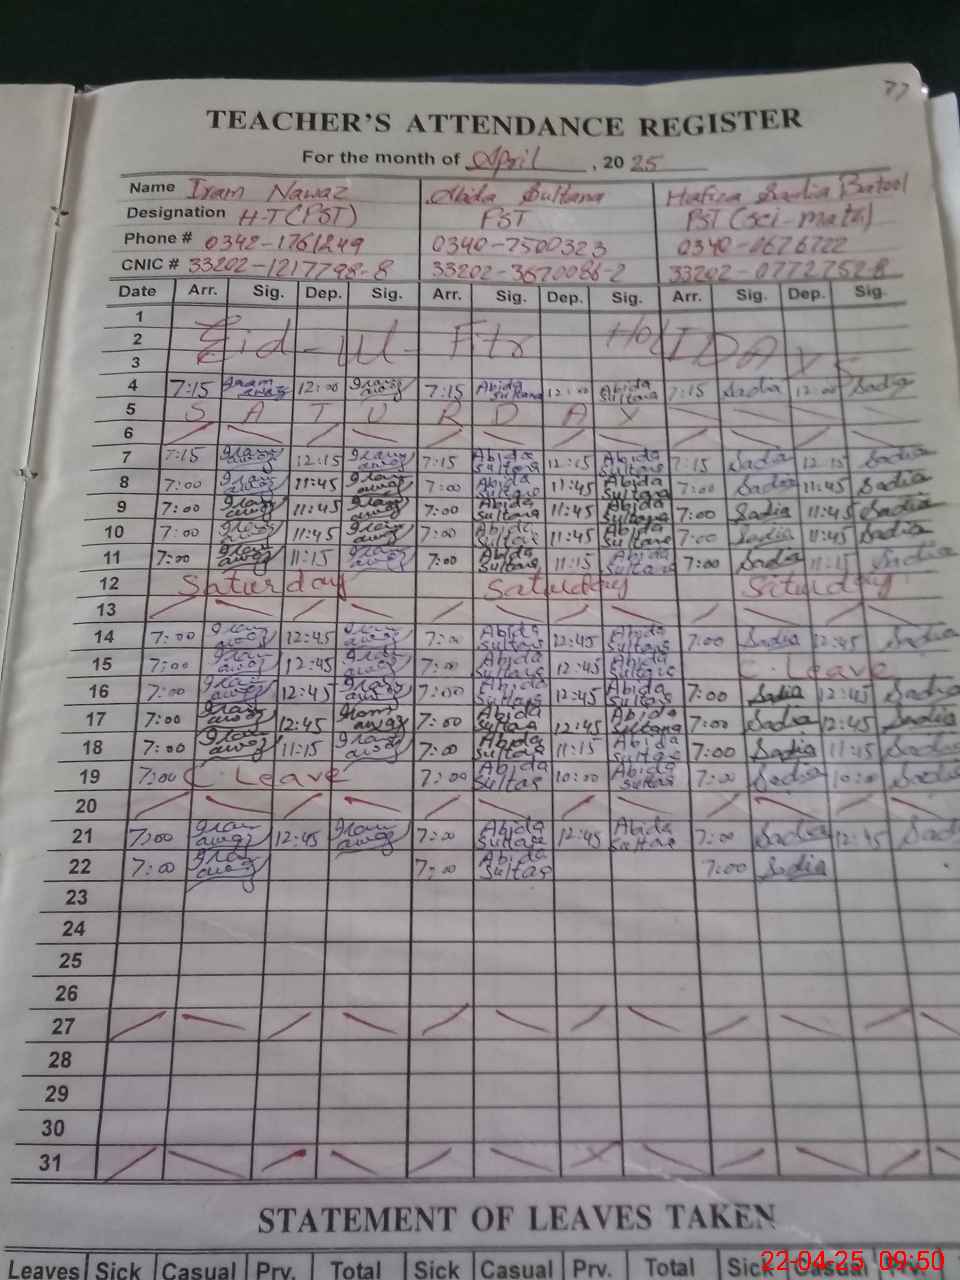 77
TEACHER'S ATTENDANCE REGISTER
For the month of April, 2025
Name Iram Nawaz Abida Sultana Hafiza Sadia Batool
Designation H-T (PST) PST PST (sci-math)
Phone # 0342-1761249 0340-7500323 0340-0676722
CNIC # 33202-1217798-8 33202-3670086-2 33202-0772752-8
Date Arr. Sig. Dep. Sig. Arr. Sig. Dep. Sig. Arr. Sig. Dep. Sig.
1
2 Eid-Ul-Fitr HolIDAYS
3
4 7:15 12:00 7:15 Abida Sultana 12:00 Abida Sultana 7:15 Sadia 12:00 Sadia
5 SATURDAY
6
7 7:15 12:15 7:15 Abida Sultana 12:15 Abida Sultana 7:15 Sadia 12:15 Sadia
8 7:00 11:45 7:00 Abida Sultana 11:45 Abida Sultana 7:00 Sadia 11:45 Sadia
9 7:00 11:45 7:00 Abida Sultana 11:45 Abida Sultana 7:00 Sadia 11:45 Sadia
10 7:00 11:45 7:00 Abida Sultana 11:45 Abida Sultana 7:00 Sadia 11:45 Sadia
11 7:00 11:15 7:00 Abida Sultana 11:15 Abida Sultana 7:00 Sadia 11:15 Sadia
12 Saturday Saturday Saturday
13
14 7:00 12:45 7:00 Abida Sultana 12:45 Abida Sultana 7:00 Sadia 12:45 Sadia
15 7:00 12:45 7:00 Abida Sultana 12:45 Abida Sultana C. Leave
16 7:00 12:45 7:00 Abida Sultana 12:45 Abida Sultana 7:00 Sadia 12:45 Sadia
17 7:00 12:45 7:00 Abida Sultana 12:45 Abida Sultana 7:00 Sadia 12:45 Sadia
18 7:00 11:15 7:00 Abida Sultana 11:15 Abida Sultana 7:00 Sadia 11:15 Sadia
19 7:00 C. Leave 7:00 Abida Sultana 10:00 Abida Sultana 7:00 Sadia 10:00 Sadia
20
21 7:00 12:45 7:00 Abida Sultana 12:45 Abida Sultana 7:00 Sadia 12:45 Sadia
22 7:00 7:00 Abida Sultana 7:00 Sadia
23
24
25
26
27
28
29
30
31
STATEMENT OF LEAVES TAKEN
Leaves Sick Casual Prv. Total Sick Casual Prv. Total Sick Casual Prv.
22-04-25 09:50